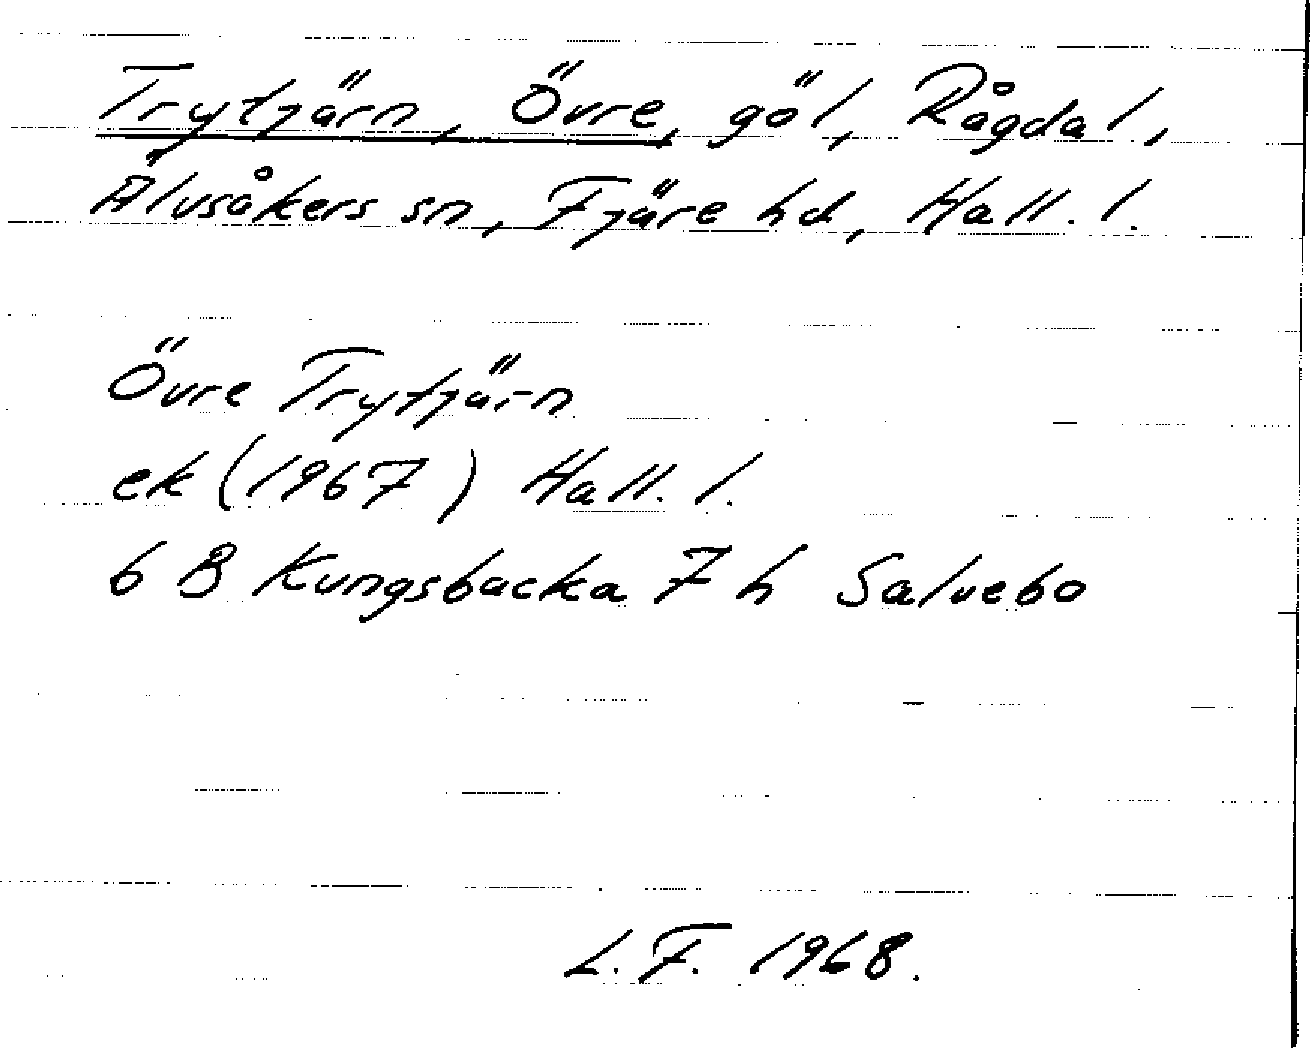 Trytjärn, Övre, göl, Rågdal,
Älvsåkers sn, Fjäre hd, Hall. l.
Övre Trytjärn
ek (1967) Hall. l.
6 B Kungsbacka 7 h Salvebo
L. F. 1968.